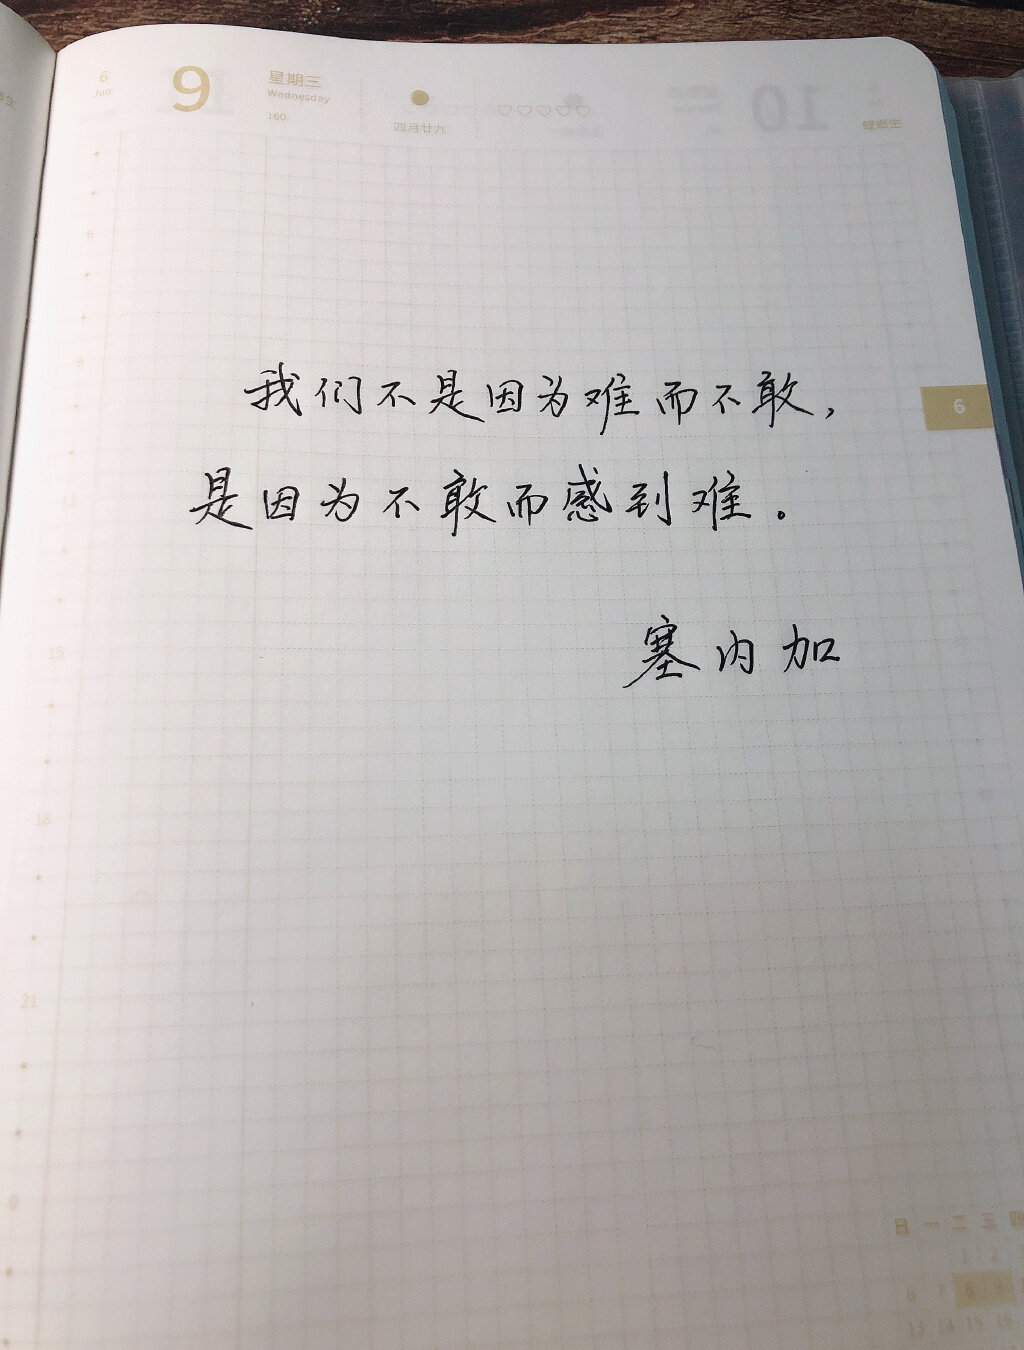 6
Jun
9
星期三
Wednesday
160
四月廿九
螳螂生
6
9
12
15
18
21
6
我们不是因为难而不敢，
是因为不敢而感到难。
塞内加
日 一 二 三 四
1 2
6 7 8 9
13 14 15 16